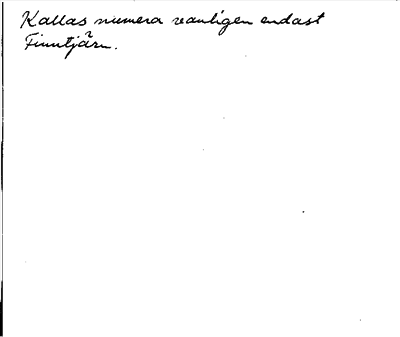 Kallas numera vanligen endast
Finntjärn.